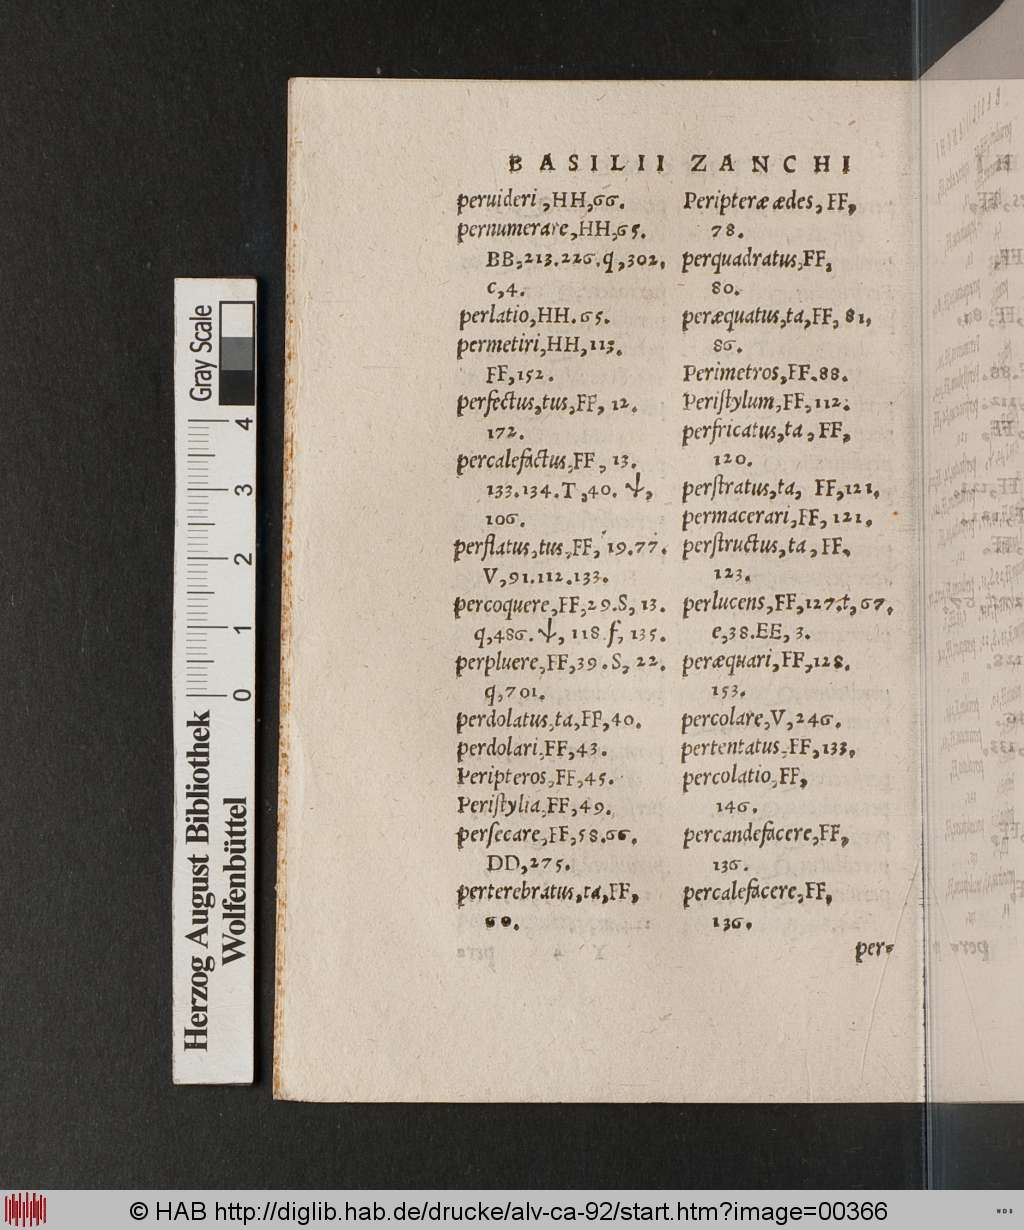 BASILII ZANCHI
peruideri, HH, 66.
pernumerare, HH, 65.
BB, 213. 226. q, 302.
c, 4.
perlatio, HH. 65.
permetiri, HH, 113.
FF, 152.
perfectus, tus, FF, 12.
172.
percalefactus, FF, 13.
133. 134. T, 40. Ψ,
106.
perflatus, tus, FF, 19. 77.
V, 91. 112. 133.
percoquere, FF, 29. S, 13.
q, 486. Ψ, 118. f, 135.
perpluere, FF, 39. S, 22.
q, 701.
perdolatus, ta, FF, 40.
perdolari, FF, 43.
Peripteros, FF, 45.
Periſtylia, FF, 49.
perſecare, FF, 58. 66.
DD, 275.
perterebratus, ta, FF,
60.
Peripteræ ædes, FF,
78.
perquadratus, FF,
80.
peræquatus, ta, FF, 81,
86.
Perimetros, FF. 88.
Periſtylum, FF, 112.
perfricatus, ta, FF,
120.
perſtratus, ta, FF, 121,
permacerari, FF, 121,
perſtructus, ta, FF,
123.
perlucens, FF, 127. t, 67,
e, 38. EE, 3.
peræquari, FF, 128.
153.
percolare, V, 246.
pertentatus, FF, 133,
percolatio, FF,
146.
percandefacere, FF,
136.
percalefacere, FF,
136.
per-
Gray Scale
0 1 2 3 4
Herzog August Bibliothek
Wolfenbüttel
© HAB http://diglib.hab.de/drucke/alv-ca-92/start.htm?image=00366